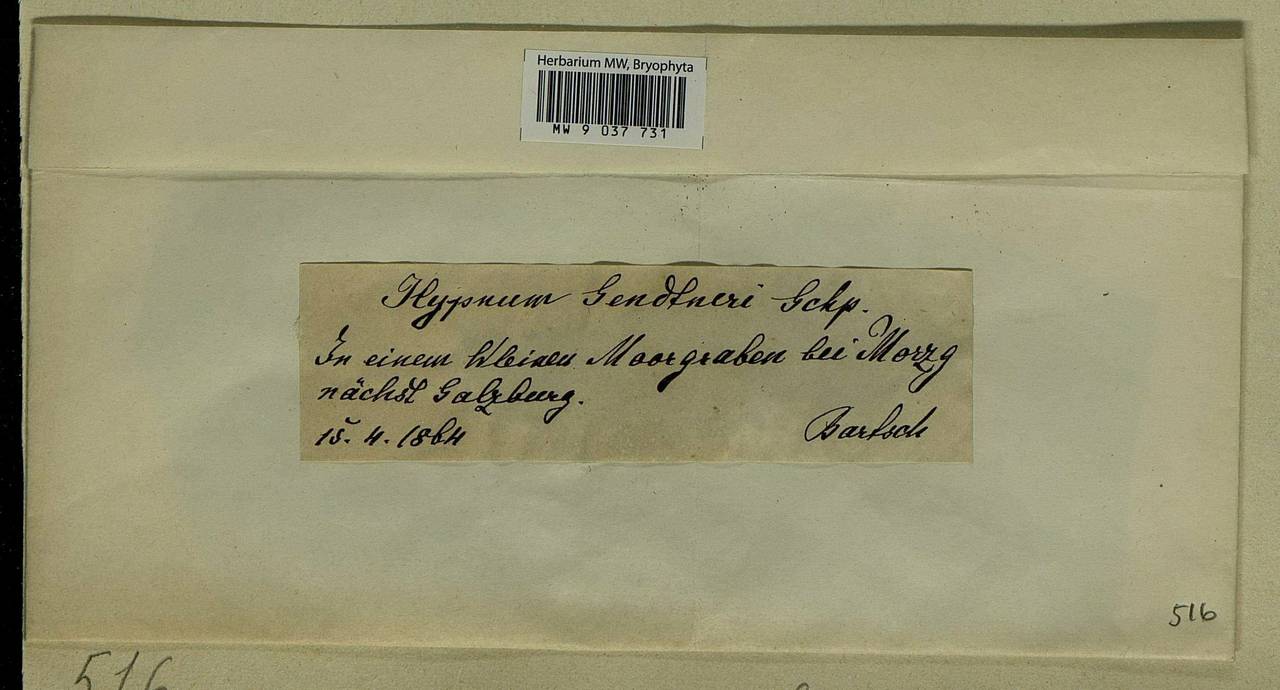 Herbarium MW, Bryophyta
MW 9 037 731
Hypnum Sendtneri Schp.
In einem kleinen Moorgraben bei Morzg
nächst Salzburg.
15. 4. 1864
Bartsch
516
516